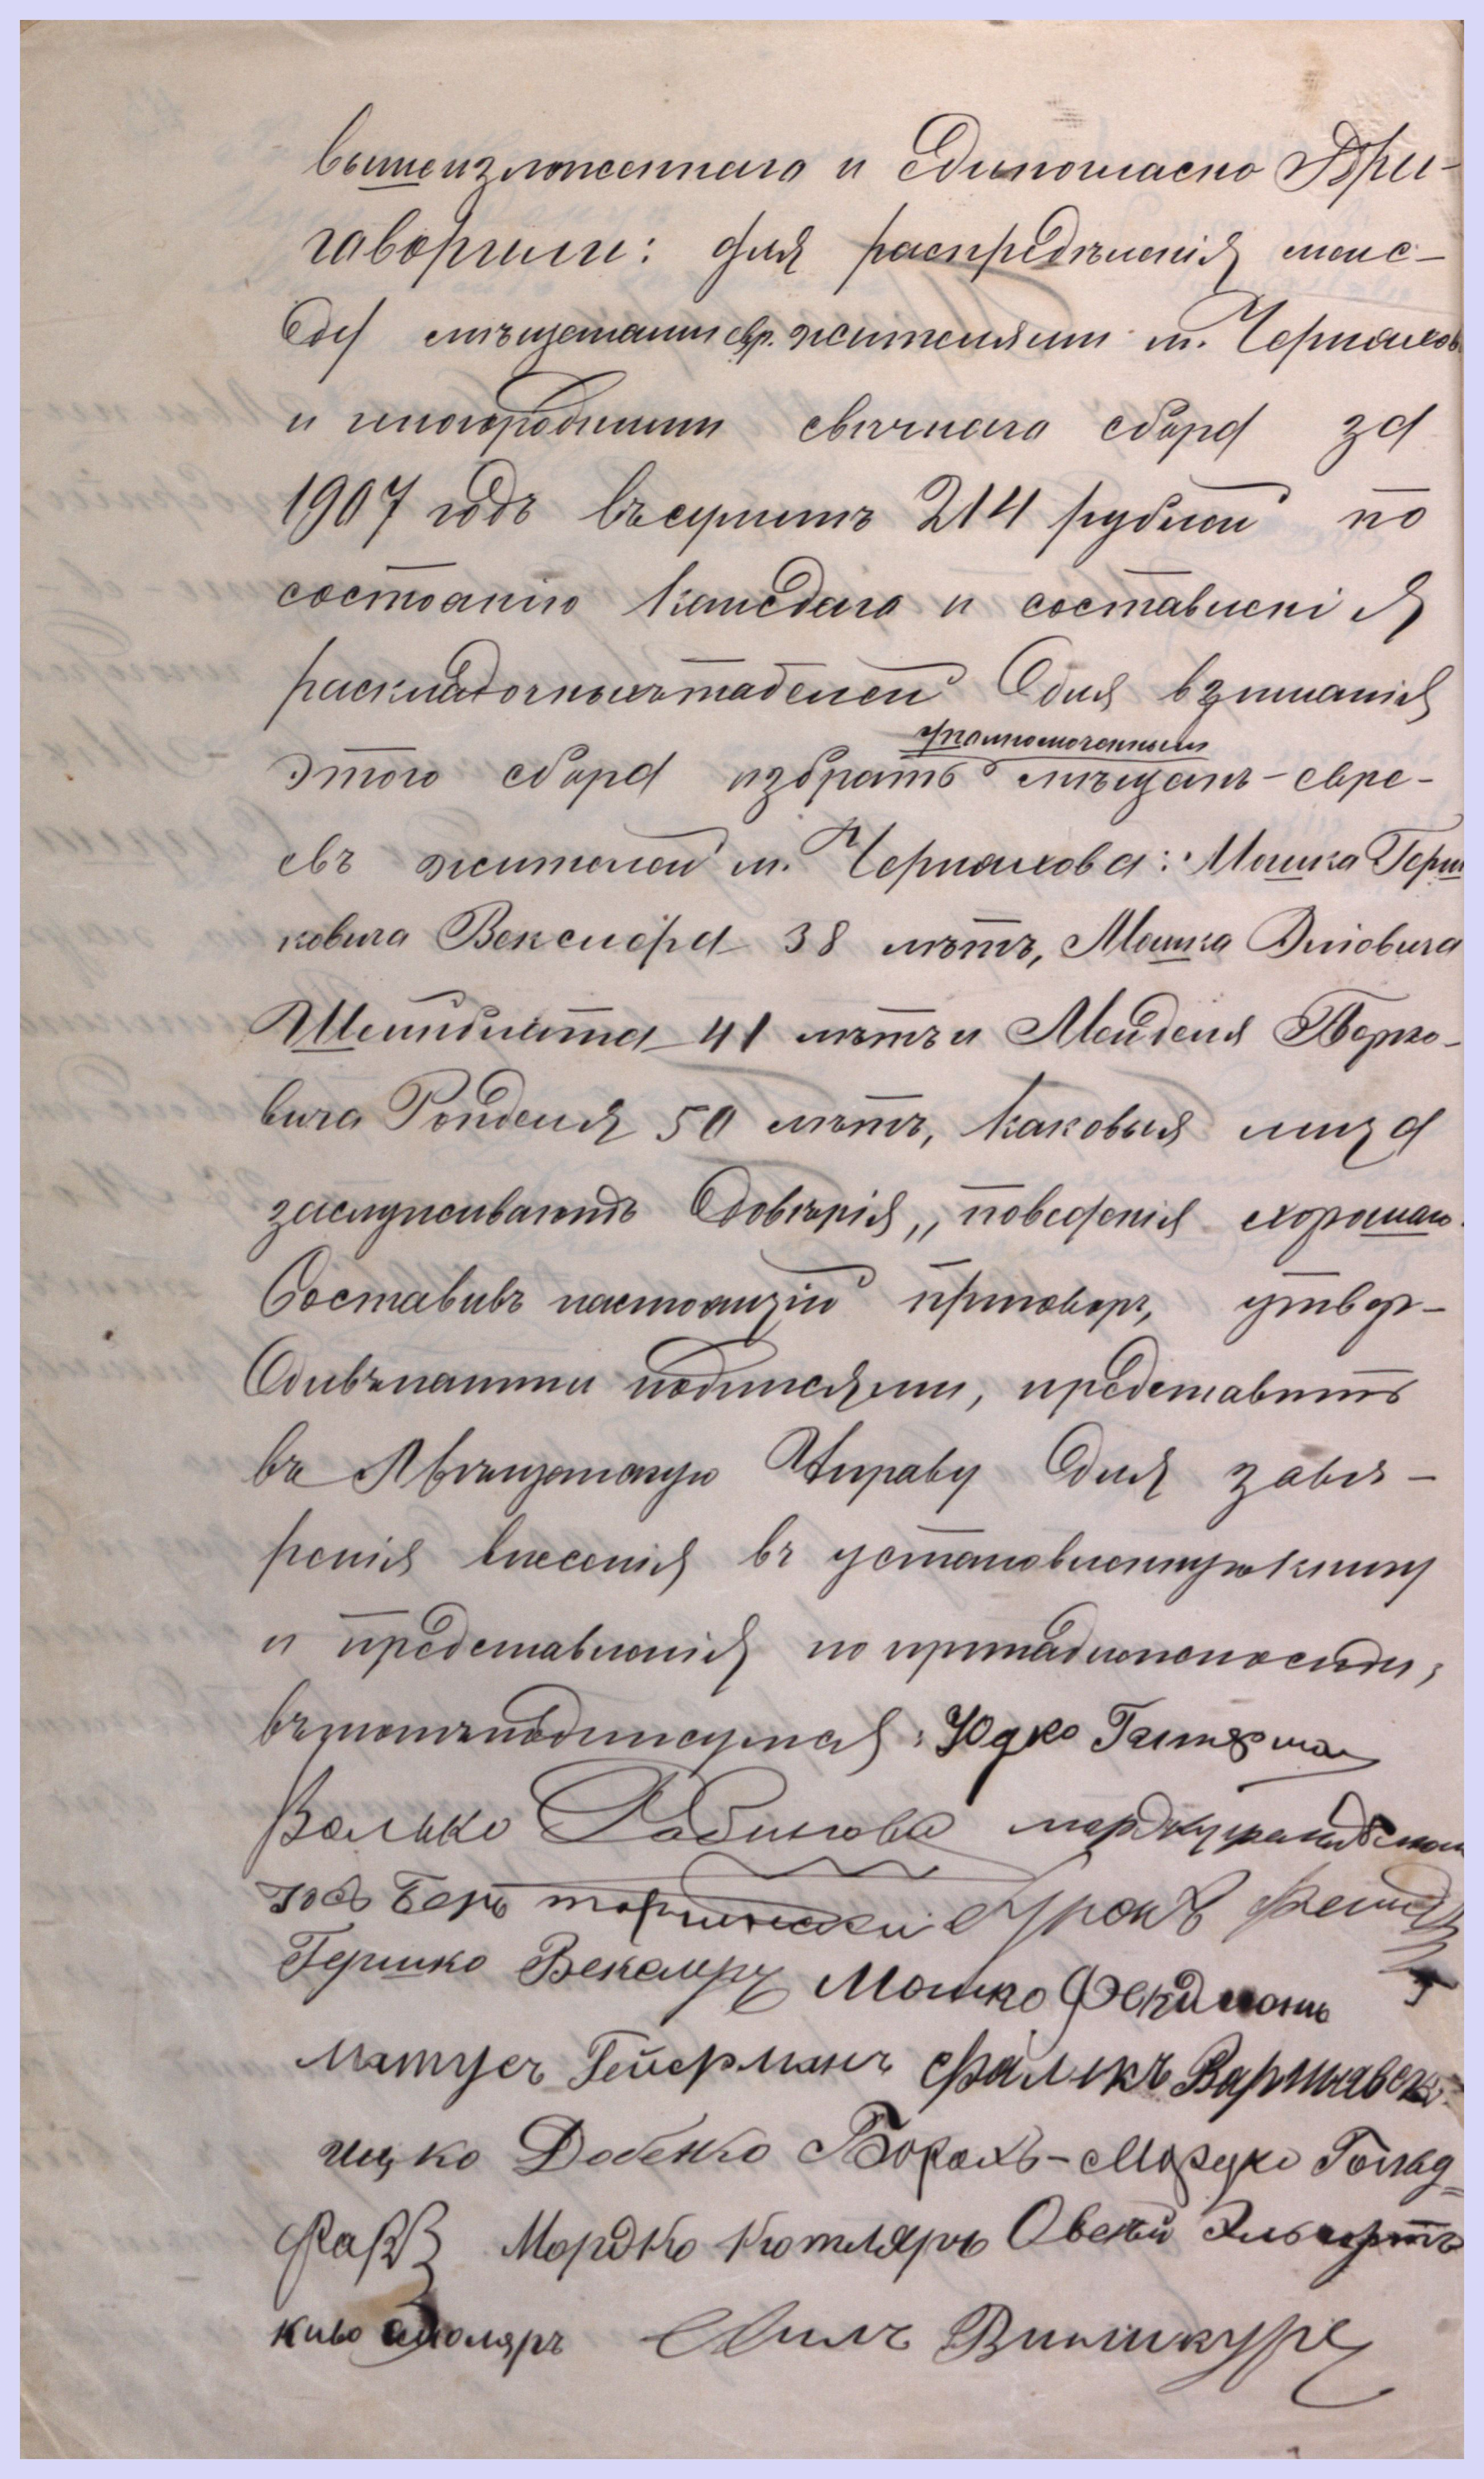 вышеизложеннаго и единогласно При-
говорили: для распредѣленія меж-
ду мѣщанами евр. жителями м. Черняхов
и иногородними свѣчнаго сбора за
1907 годъ въ суммѣ 214 рублей по
состоянію каждаго и составленія
раскладочныхъ табелей для взиманія
уполномоченными
этого сбора избрать мѣщанъ-евре-
евъ жителей м. Черняхова: Мошка Герш
ковича Векслера 38 лѣтъ, Мошка Эліовича
41 лѣтъ и Менделя Берко-
вича Рейделя 50 лѣтъ, каковыя лица
заслуживаютъ довѣрія, поведенія хорошаго.
Составивъ настоящій приговоръ, утвер-
дивъ нашими подписями, представить
въ Мѣщанскую Управу для завѣ-
ренія внесенія въ установленную книгу
и представленія по принадлежности,
въ томъ подписуемся: Юдко Гальтерман
Волько Рабинова мордку
Іось Беръ
Гершко Векслеръ Мошко Фельдманъ
Матусъ Гейерманъ Фаликъ Варшавск
ицко Добенко Борохъ-Мордко Гольд-
фарб Мордко Котляръ Овсей Эльпертъ
киво столяръ Хаимъ Винокуръ